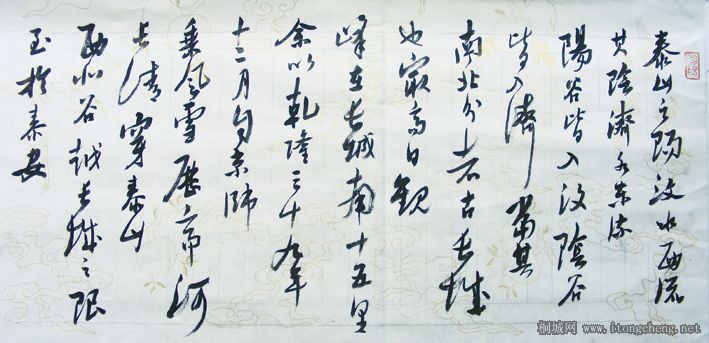 泰山之陽汶水西流
其陰濟水東流
陽谷皆入汶陰谷
皆入濟當其
南北分者古長城
也最高日觀
峰在長城南十五里
余以乾隆三十九年
十二月自京師
乘風雪歷齊河
長清穿泰山
西北谷越長城之限
至於泰安
桐城网 www.itongcheng.net